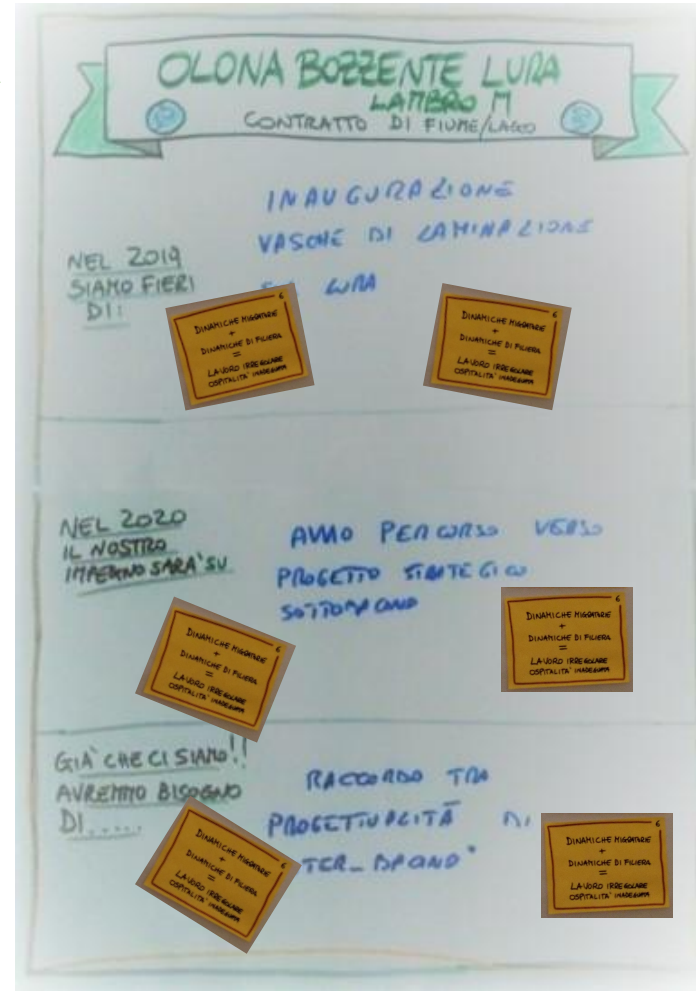 OLONA BOZZENTE LURA
LAMBRO M
CONTRATTO DI FIUME/LAGO
INAUGURAZIONE
VASCHE DI LAMINAZIONE
LURA
NEL 2019
SIAMO FIERI
DI:
6
DINAMICHE MIGRATORIE
+
DINAMICHE DI FILIERA
=
LAVORO IRREGOLARE
OSPITALITA' INADEGUATA
6
DINAMICHE MIGRATORIE
+
DINAMICHE DI FILIERA
=
LAVORO IRREGOLARE
OSPITALITA' INADEGUATA
NEL 2020
IL NOSTRO
IMPEGNO SARA' SU
AVVIO PERCORSO VERSO
PROGETTO STRATEGICO
SOTTOBACINO
6
DINAMICHE MIGRATORIE
+
DINAMICHE DI FILIERA
=
LAVORO IRREGOLARE
OSPITALITA' INADEGUATA
6
DINAMICHE MIGRATORIE
+
DINAMICHE DI FILIERA
=
LAVORO IRREGOLARE
OSPITALITA' INADEGUATA
GIÀ CHE CI SIAMO!!
AVREMMO BISOGNO
DI.....
RACCORDO TRA
PROGETTUALITÀ DI
6
DINAMICHE MIGRATORIE
+
DINAMICHE DI FILIERA
=
LAVORO IRREGOLARE
OSPITALITA' INADEGUATA
6
DINAMICHE MIGRATORIE
+
DINAMICHE DI FILIERA
=
LAVORO IRREGOLARE
OSPITALITA' INADEGUATA